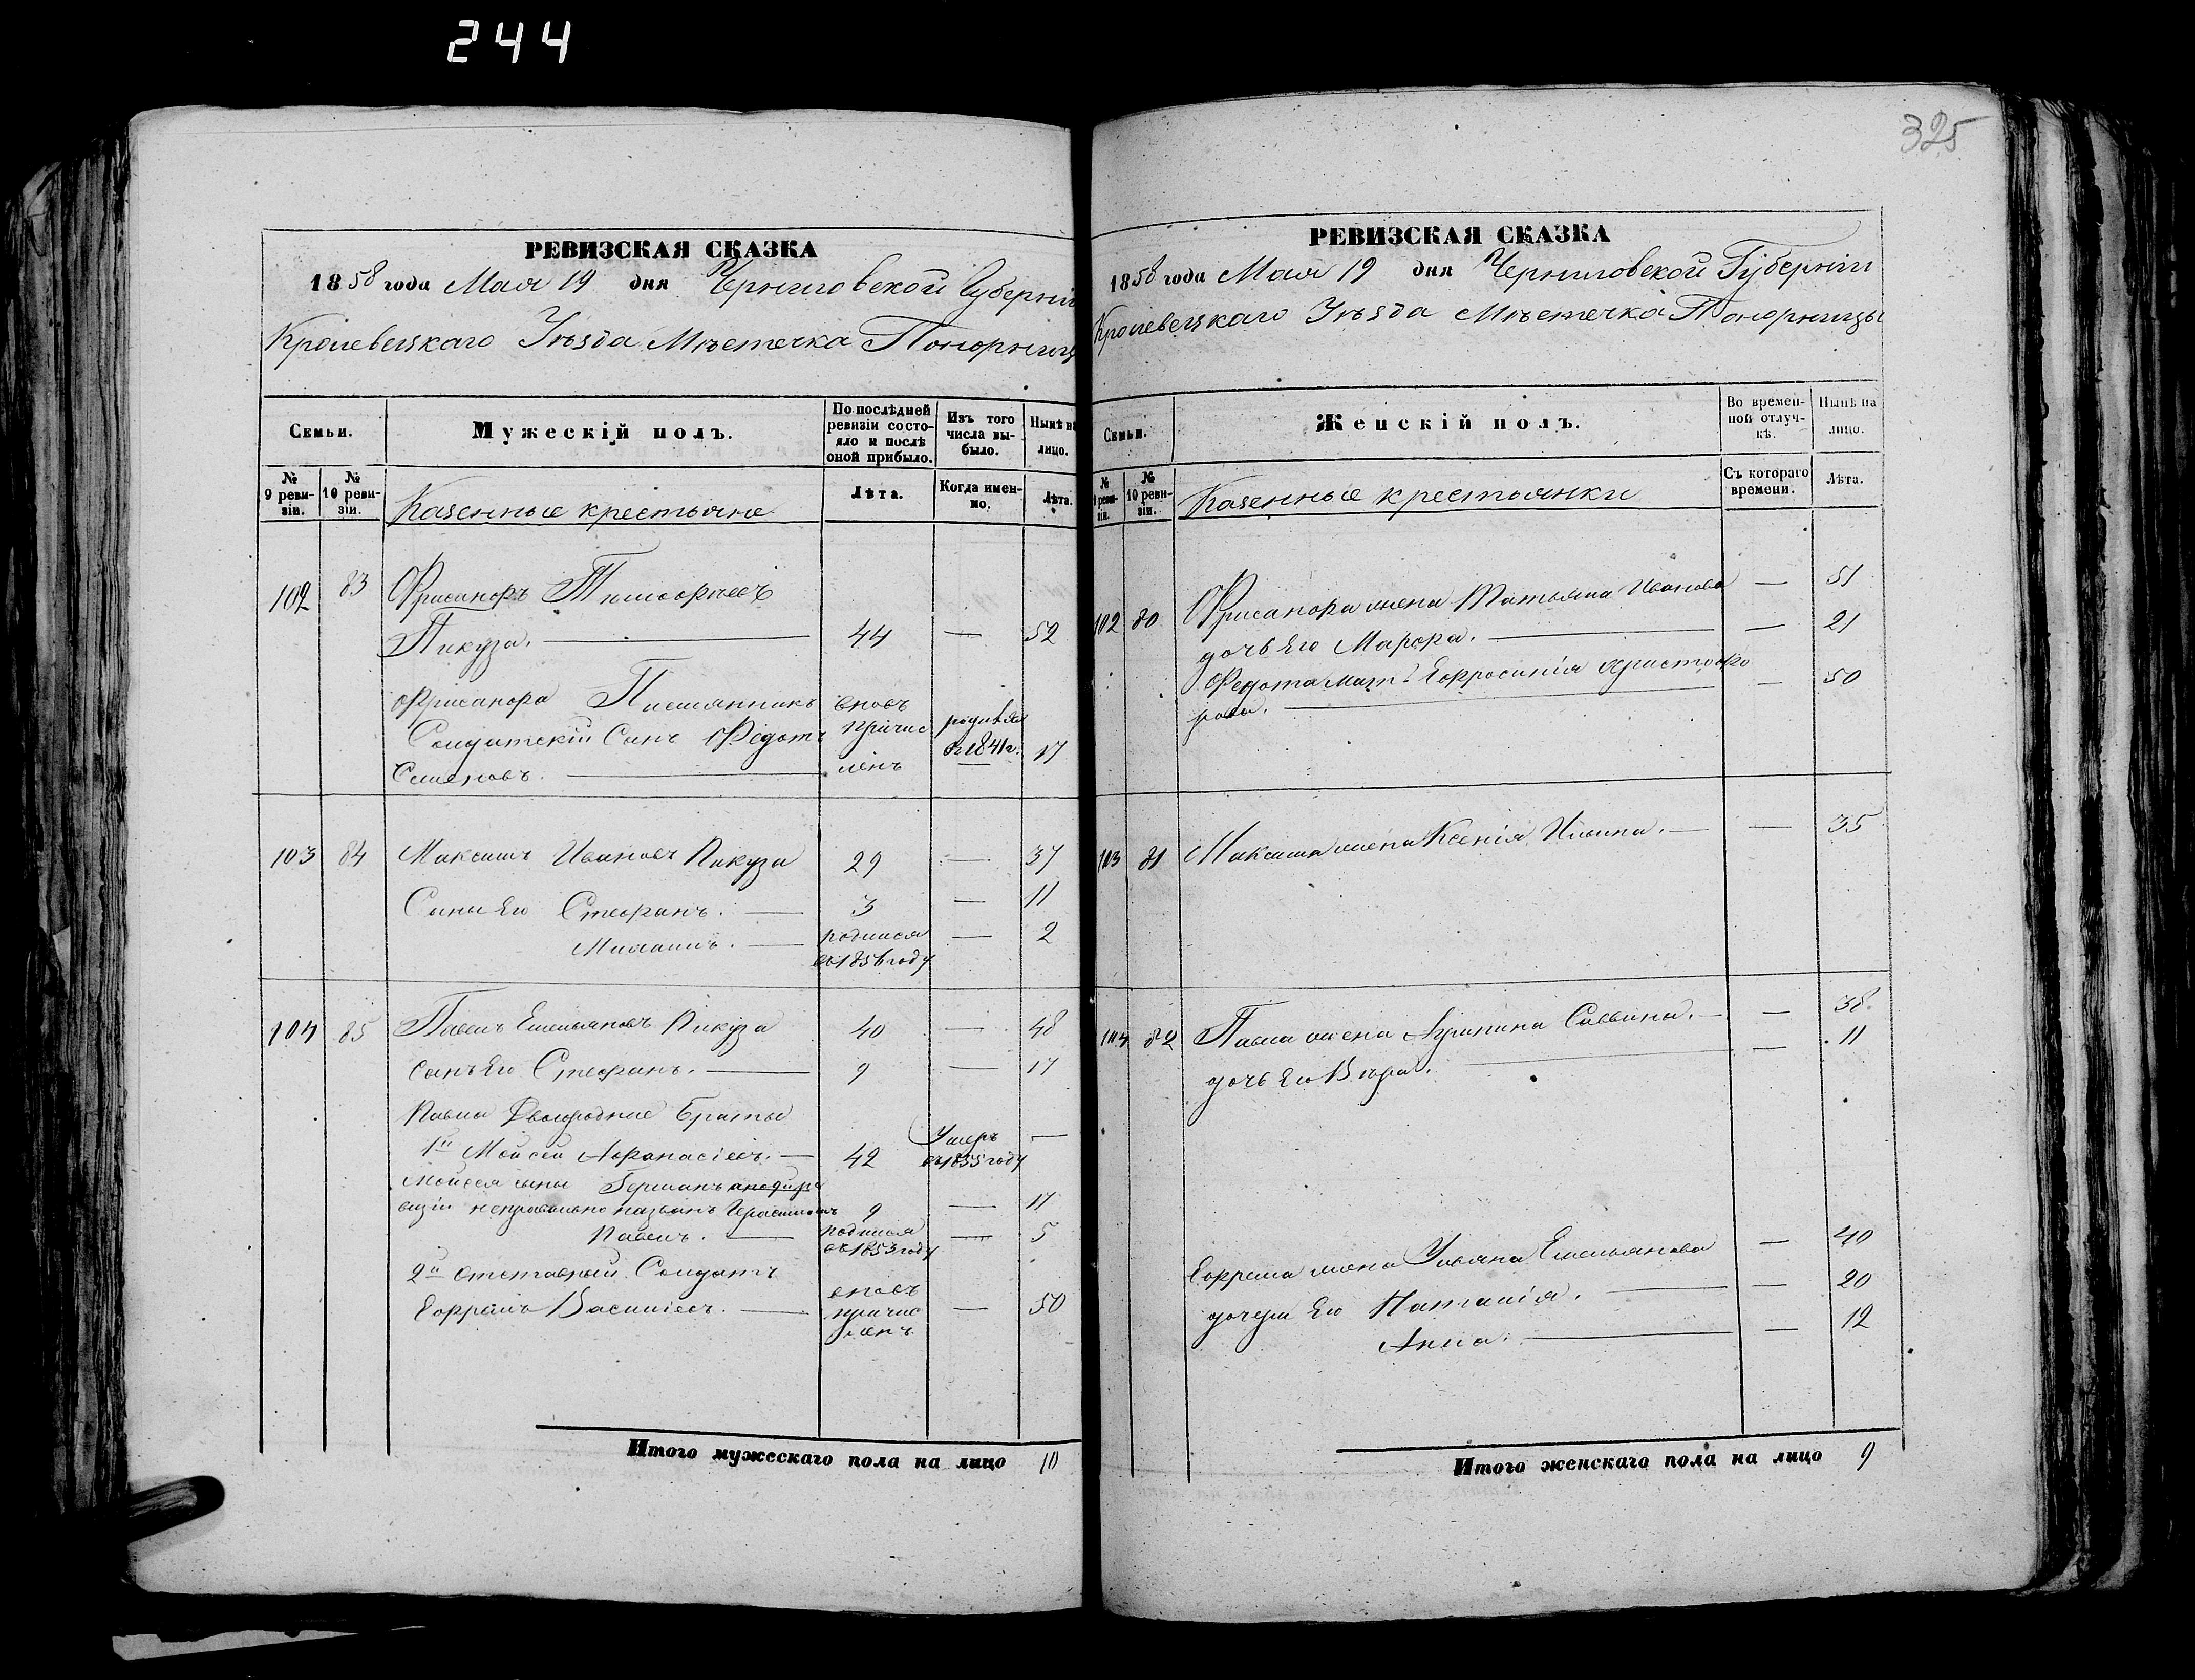 244
325
РЕВИЗСКАЯ СКАЗКА
1858 года Мая 19 дня Черниговской Губерніи
Кролевецкаго Уѣзда Мѣстечка Понорницы
Семьи.
Мужескій полъ.
По послѣдней ревизіи состояло и послѣ оной прибыло.
Изъ того числа выбыло.
Нынѣ на лицо.
№ 9 ревизіи.
№ 10 ревизіи.
Казенные крестьяне
Лѣта.
Когда именно.
Лѣта.
102 83
Пикуза. — 44 — 52
вновь
Солдатскій Сынъ Федотъ причис родился
Семеновъ. — ленъ въ 1841 г. 17
103 84 Максимъ Ивановъ Пикуза 29 — 37
Сыны Его Стефанъ. — 3 — 11
родился — 2
въ 1856 году
104 85 Павелъ Емельяновъ Пикуза 40 — 48
Сынъ Его Стефанъ. — 9 — 17
Павла Двоюродные Браты
1й Мойсей Афанасіевъ. — 42 Умеръ въ 1855 году —
Мойсея сыны Германъ
неправильно названъ Герасимомъ 9 — 17
Павелъ. — родился въ 1853 году — 5
2й отставный Солдатъ
Ефремъ Василіевъ. — вновь причис ленъ — 50
Итого мужескаго пола на лицо 10
РЕВИЗСКАЯ СКАЗКА
1858 года Мая 19 дня Черниговской Губерніи
Кролевецкаго Уѣзда Мѣстечка Понорницы
Семьи.
Женскій полъ.
Во временной отлучкѣ.
Нынѣ на лицо.
№ 9 ревизіи.
№ 10 ревизіи.
Казенные крестьянки
Съ котораго времени.
Лѣта.
102 80 жена Татьяна Иванова — 51
дочь Его Марфа. — — 21
Федота мать Ефросинія Христофо
рова. — — 50
103 81 Максима жена Ксенія Ильина. — — 35
104 82 Павла жена Агрипина Саввина. — — 38
дочь Его Вѣра. — — 11
Ефрема жена Ульяна Емельянова — 40
дочери Его Наталія. — — 20
Анна. — — 12
Итого женскаго пола на лицо 9